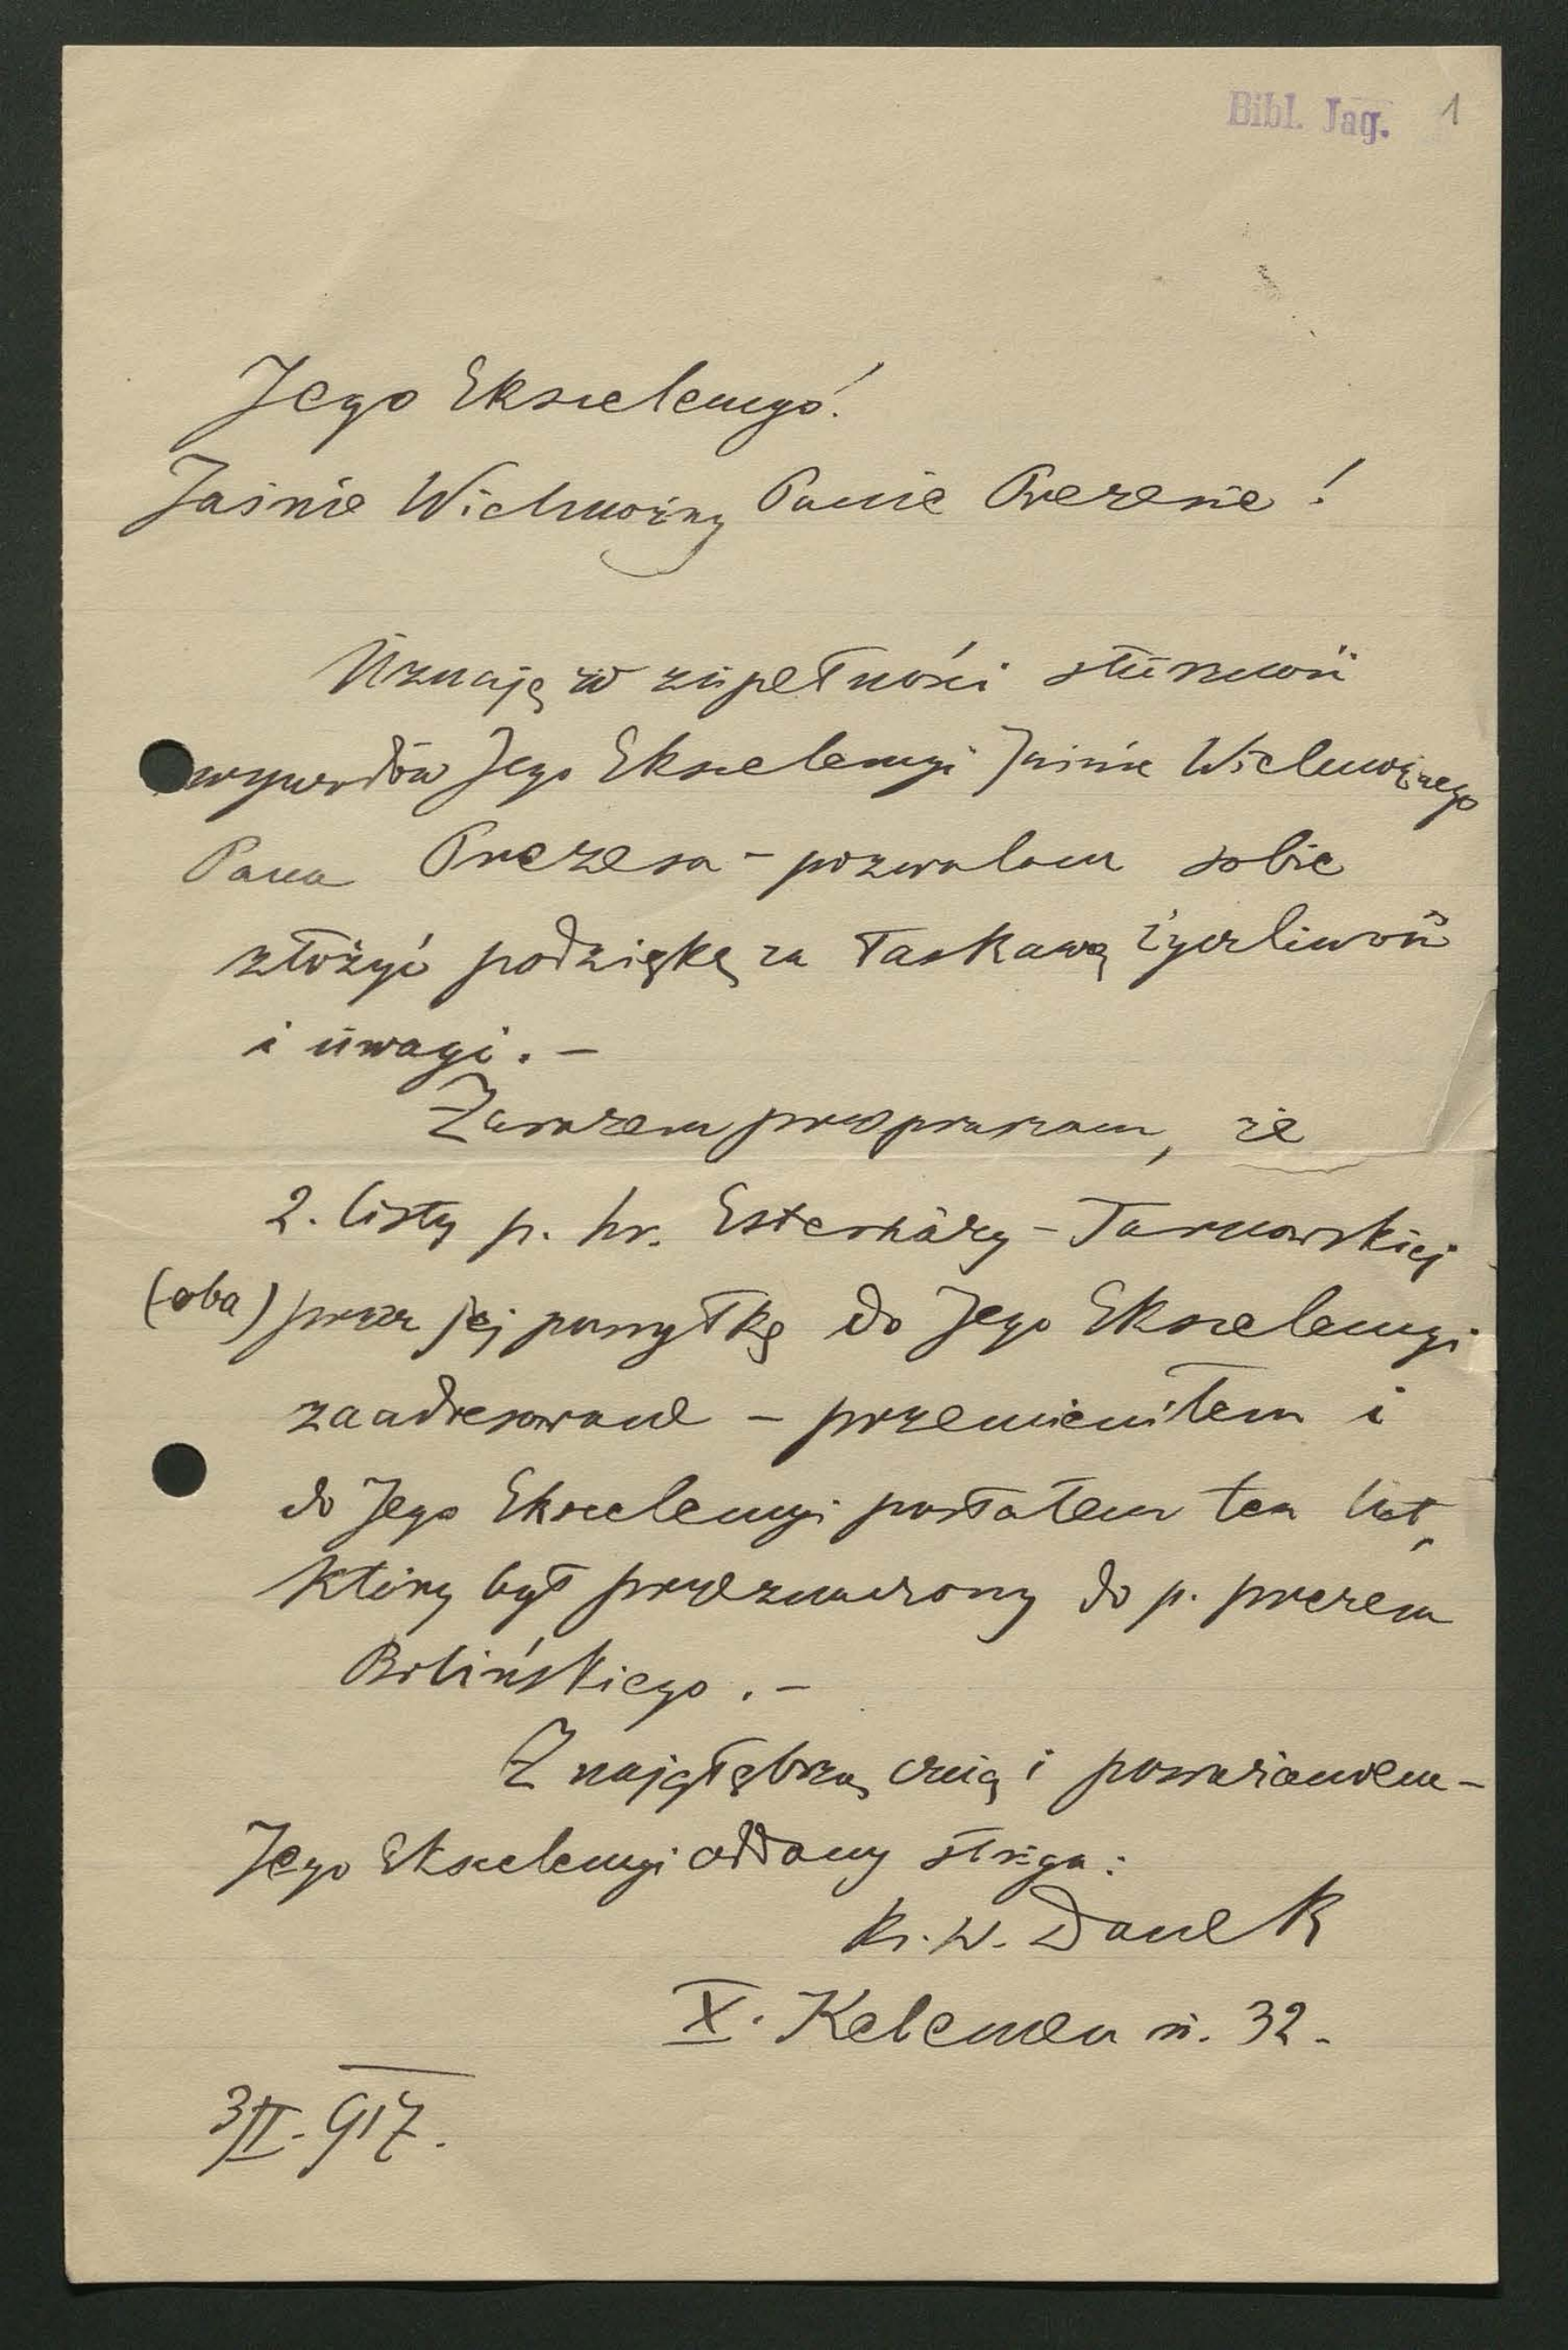 Bibl. Jag. 1
Jego Ekscelencyo!
Jaśnie Wielmożny Panie Prezesie!
Uznaję w zupełności słuszność
wywodów Jego Ekscelencyi Jaśnie Wielmożnego
Pana Prezesa - pozwalam sobie
złożyć podziękę za łaskawą życzliwość
i uwagi. -
Zarazem przepraszam, że
2. listy p. hr. Esterházy - Tarnowskiej
(oba) przez jej pomyłkę do Jego Ekscelencyi
zaadresowane - przemieniłem i
do Jego Ekscelencyi posłałem ten list,
który był przeznaczony do p. prezesa
Bilińskiego. -
Z najgłębszą czcią i poważaniem -
Jego Ekscelencyi oddany sługa:
Ks. W. Danek
X. Kelemen u. 32.
3/II. 917.